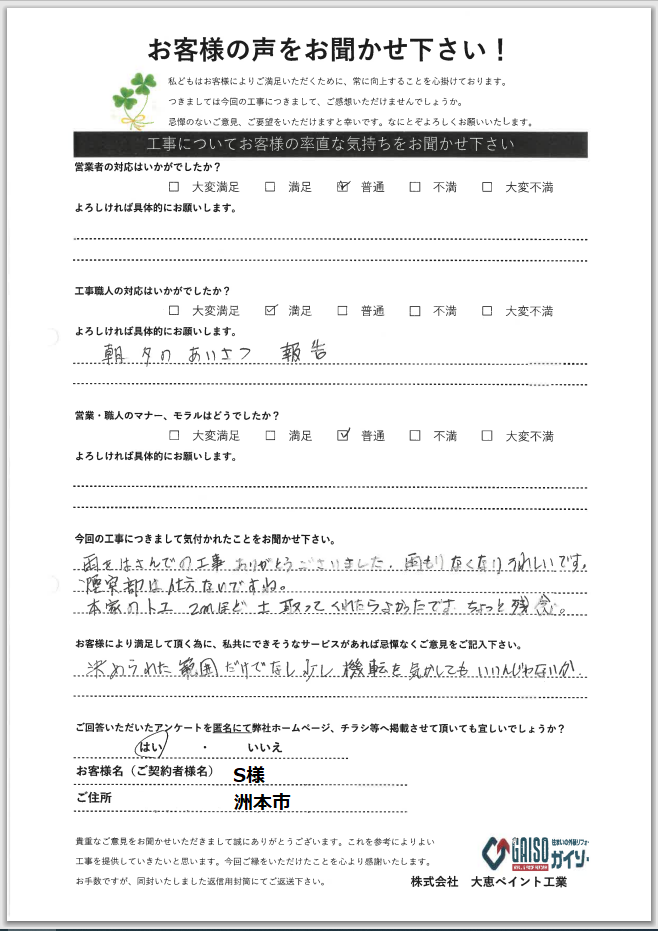 お客様の声をお聞かせ下さい！
私どもはお客様によりご満足いただくために、常に向上することを心掛けております。
つきましては今回の工事につきまして、ご感想いただけませんでしょうか。
忌憚のないご意見、ご要望をいただけますと幸いです。なにとぞよろしくお願いいたします。
工事についてお客様の率直な気持ちをお聞かせ下さい
営業者の対応はいかがでしたか？
□ 大変満足 □ 満足 ☑ 普通 □ 不満 □ 大変不満
よろしければ具体的にお願いします。
工事職人の対応はいかがでしたか？
□ 大変満足 ☑ 満足 □ 普通 □ 不満 □ 大変不満
よろしければ具体的にお願いします。
朝夕のあいさつ 報告
営業・職人のマナー、モラルはどうでしたか？
□ 大変満足 □ 満足 ☑ 普通 □ 不満 □ 大変不満
よろしければ具体的にお願いします。
今回の工事につきまして気付かれたことをお聞かせ下さい。
雨をはさんでの工事 ありがとうございました。雨もりなくなりうれしいです。
部は仕方ないですね。
本家の 2mほど 土 取ってくれたらよかったです ちょっと残念。
お客様により満足して頂く為に、私共にできそうなサービスがあれば忌憚なくご意見をご記入下さい。
決められた範囲だけでなし少し 機転を気かしても いいんじゃないか
ご回答いただいたアンケートを匿名にて弊社ホームページ、チラシ等へ掲載させて頂いても宜しいでしょうか？
はい ・ いいえ
お客様名（ご契約者様名） S様
ご住所 洲本市
貴重なご意見をお聞かせいただきまして誠にありがとうございます。これを参考によりよい
工事を提供していきたいと思います。今回ご縁をいただけたことを心より感謝いたします。
お手数ですが、同封いたしました返信用封筒にてご返送下さい。
GAISO 住まいの外装リフォ
ガイソー
株式会社 大恵ペイント工業